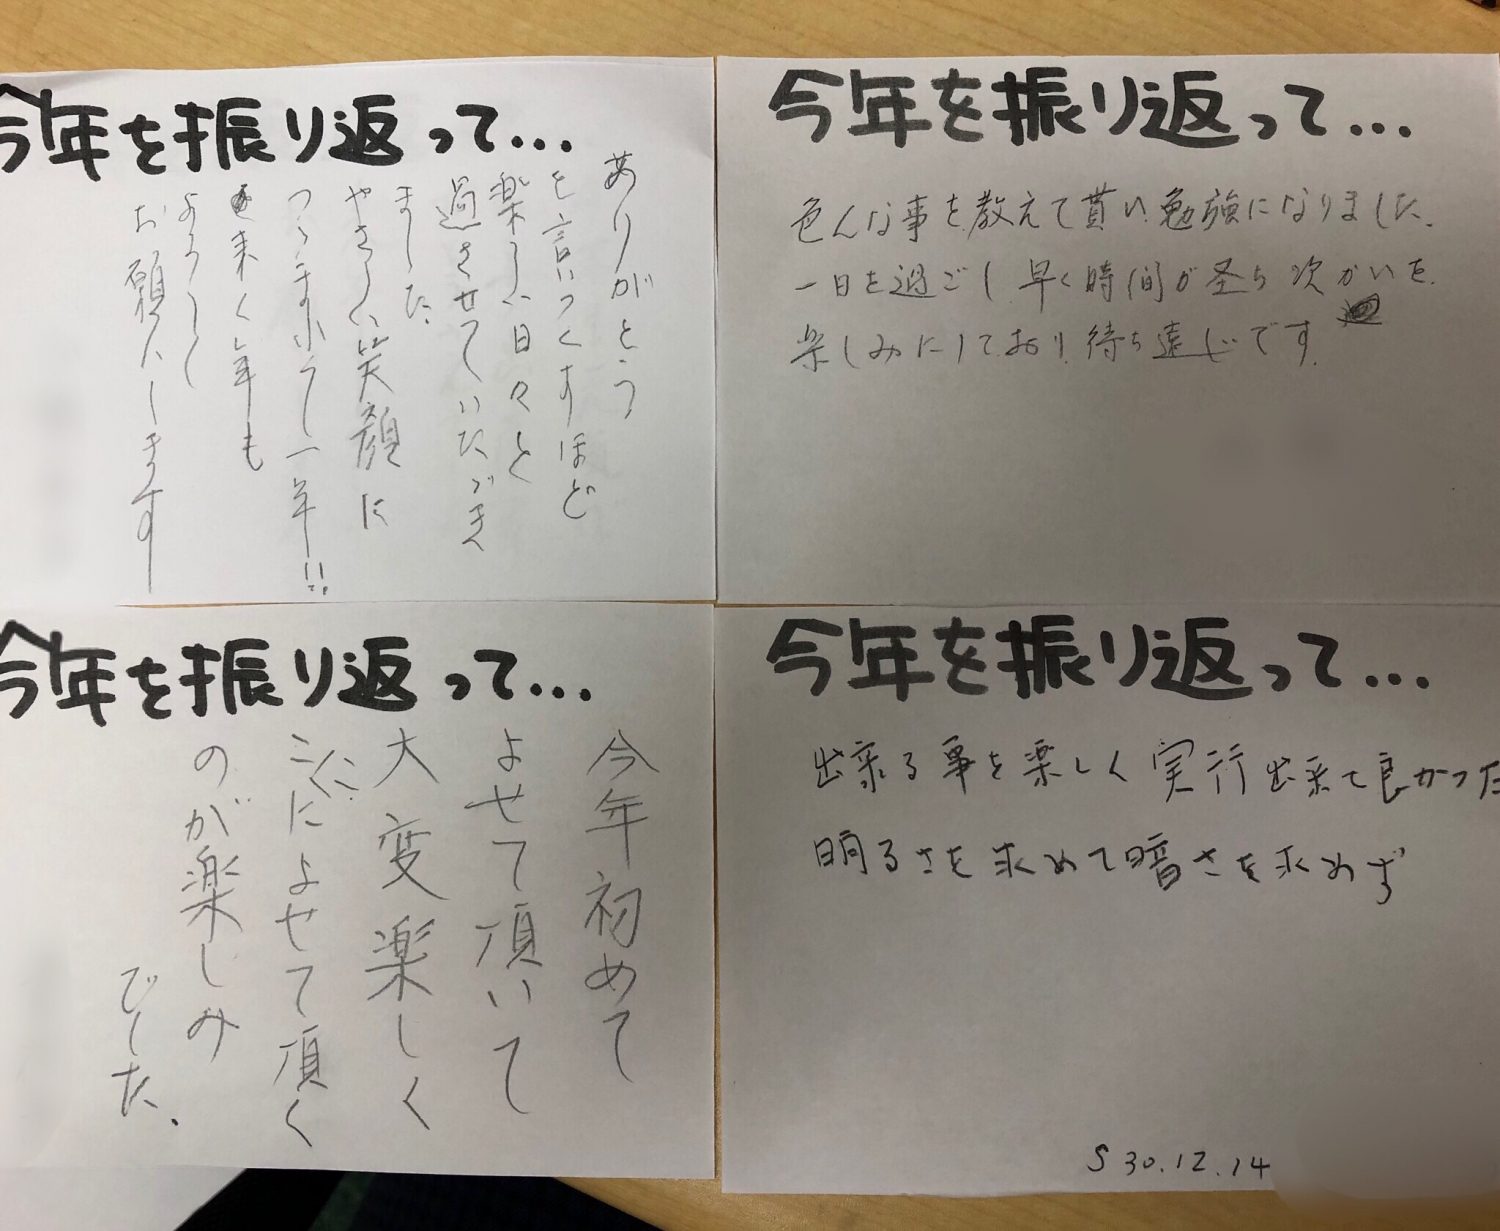 今年を振り返って...
ありがとう
を言いつくすほど
楽しい日々と
過させていただき
ました
やさしい笑顔に
つゝまれうし一年!!
来く年も
よろしく
お願いします
今年を振り返って...
色んな事を教えて貰い勉強になりました。
一日を過ごし早く時間が圣ち次かいを
楽しみにしており待ち遠じです
今年を振り返って...
今年初めて
よせて頂いて
大変楽しく
こゝによせて頂く
のが楽しみ
でした.
今年を振り返って...
出来る事を楽しく実行出来て良かった
明るさを求めて暗さを求めず
S30.12.14